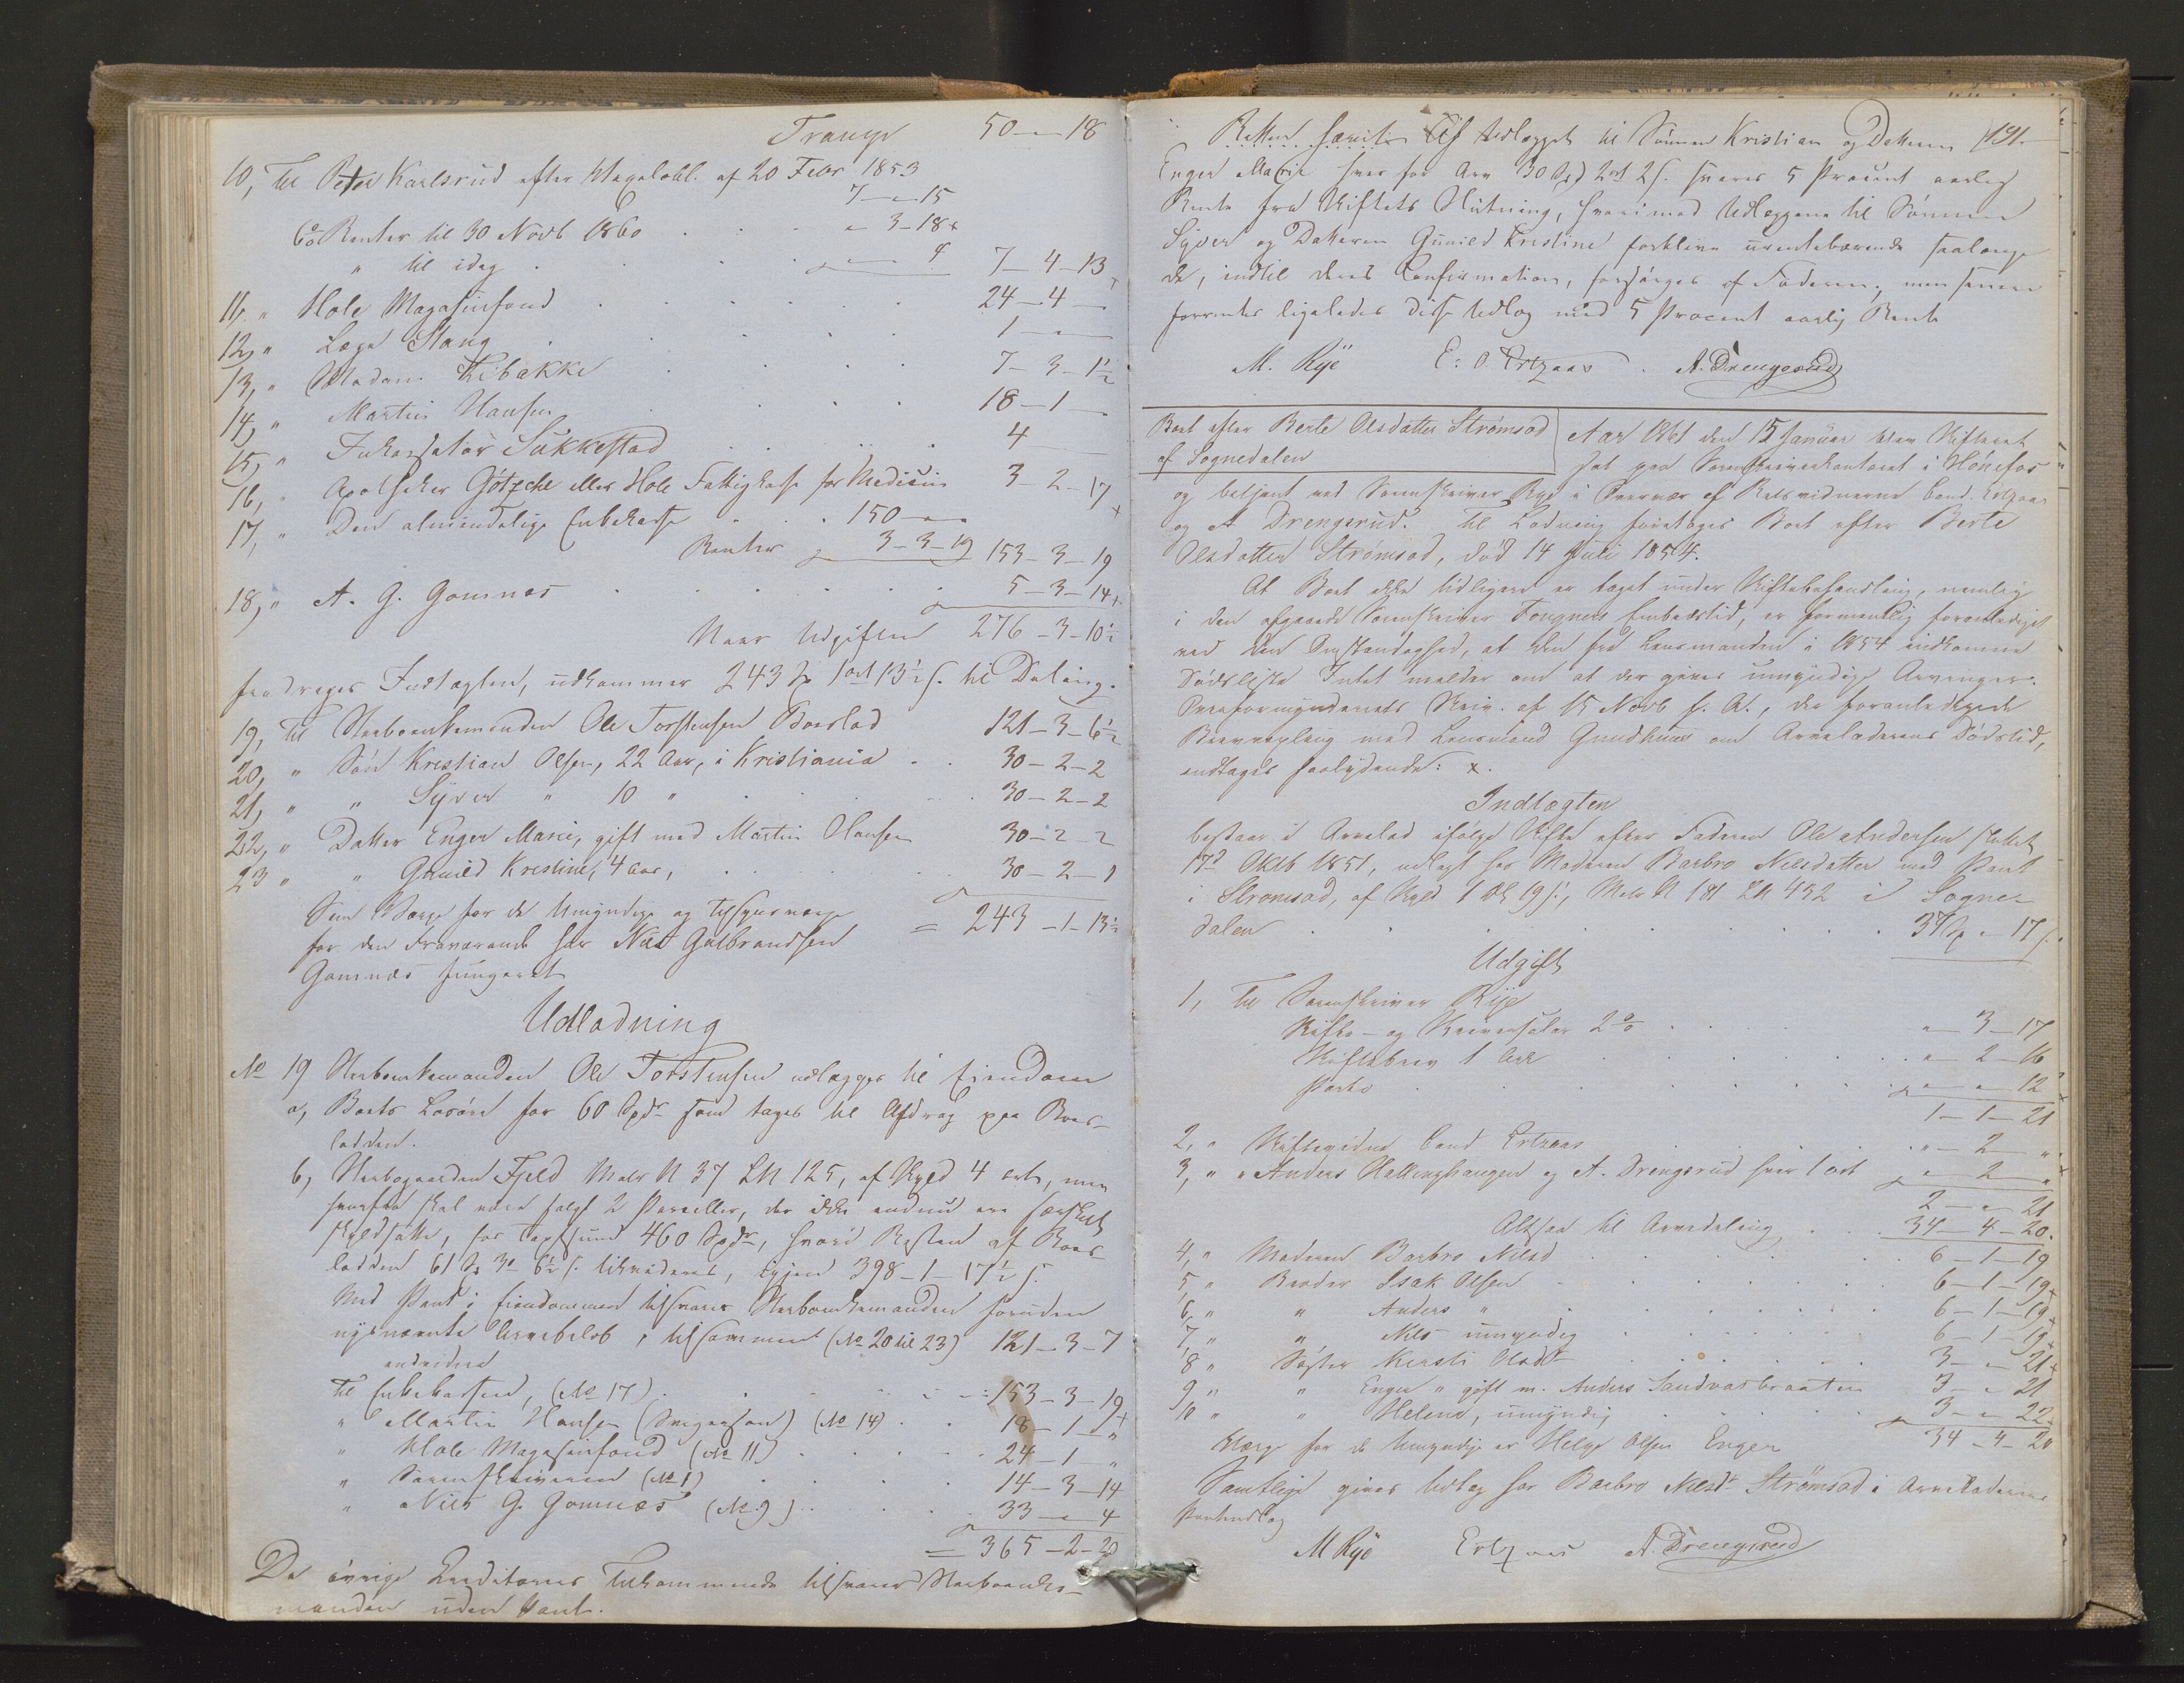 Transp 50 - " - 18
10, Til Peter Karlsrud efter Uegelobl. af 20 Febr 1853
7 - " - 15
6% Renter til 30 Novb 1860 . . " - 3 - 18
" til idag . . . " - " - 4 7 - 4 - 13
11, " Hole Magasinfond . . . 24 - 4 - "
12, " Læge Stang . . . 1 - " - "
13, " Madam Libakke . . . 7 - 3 - 1½
14, " Martin Hansen . . . 18 - 1 - "
15, " Inkassator Sukkestad . . . 4
16, " Apotheker Götzche eller Hole Fattigkasse for Medicin 3 - 2 - 17
17, " Den almindelige Enkekasse . . . 150 - " - "
Renter 3 - 3 - 19 153 - 3 - 19
18, " A. G. Gomnæs . . . 5 - 3 - 14
Naar Udgiften 276 - 3 - 10½
fradrages Indtægten, udkommer 243 Sp 1 ort 13½ s. til Deling.
19, Til Sterboenkemanden Ole Torstensen Boeslod 121 - 3 - 6½
20, " Søn Kristian Olsen, 22 Aar, i Kristiania . . 30 - 2 - 2
21, " " Syver " 10 " . . . 30 - 2 - 2
22, " Datter Enger Marie, gift med Martin Hansen 30 - 2 - 2
23 " " Gunild Kristine, 4 Aar, . . . 30 - 2 - 1
Som Værge for de Umyndige og Tilsynsværge = 243 - 1 - 13½
for den Fraværende har Nils Gulbrandsen
Gomnæs fungeret
Udlodning
No 19 Sterboenkemanden Ole Torstensen udlægges til Eiendom
a, Boets Løsøre for 60 Spdr som tages til Afdrag paa Boes-
lodden.
b, Sterbogaarden Fjeld Matr N 37 LN 125, af Skyld 4 ort, men
hvorfra skal være solgt 2 Parceller, der ikke endnu ere særskilt
skyldsatte, for Taxtsum 460 Spdr, hvori Resten af Boes-
lodden 61 Sp 3 ort 6½ s. likvideres, igjen 398 - 1 - 17½ s.
Med Pant i Eiendommen tilsvarer Sterboenkemanden foruden
nysnævnte Arvebeløb, tilsammen (No 20 til 23) 121 - 3 - 7
endvidere
til Enkekassen, (No 17) . . . 153 - 3 - 19
" Martin Hansen (Svigersøn) (No 14) . . 18 - 1 - "
" Hole Magasinfond (No 11) . . . 24 - 1 - "
" Sorenskriveren (No 1) . . . 14 - 3 - 14
" Nils G. Gomnæs (No 9) . . . 33 - " - 4
= 365 - 2 - 20
De øvrige Creditorers Tilkommende tilsvarer Sterboenke-
manden uden Pant.
191.
Retten Af Udlægget til Sønnen Kristian og Datteren
Enger Marie hver for Arv 30 Sp 2 ort 2 s. svares 5 Procent aarlig
Rente fra Skiftets Slutning, hvorimod Udlæggene til Sønnen
Syver og Datteren Gunild Kristine forblive urentebærende saalænge
de, indtil deres Confirmation, forsørges af Faderen; men senere
forrentes ligeledes disse Udlæg med 5 Procent aarlig Rente
M. Rye E: O. Ertzaas . A. Drengsrud
Boet efter Berte Olsdatter Strømsod
af Sognedalen
Aar 1861 den 15 Januar blev Skifteret
sat paa Sorenskriverkontoret i Hønefos
og betjent ved Sorenskriver Rye i Overvær af Retsvidnerne Cand. Ertzaas
og A Drengsrud. Til Lodning foretages Boet efter Berte
Olsdatter Strømsod, død 14 Juli 1854.
At Boet ikke tidligere er taget under Skiftebehandling, nemlig
i den afgaaede Sorenskriver Fougners Embedstid, er formentlig foranlediget
ved den Omstændighed, at den fra Lensmanden i 1854 indkomne
Dødsliste Intet melder om at der gives umyndige Arvinger.
Overformynderiets Skriv. af 15 Novb f. A., der foranledigede
Brevvexling med Lensmand Gundhus om Arveladerens Dødstid,
indtages saalydende: x.
Indtægten
bestaar i Arvelod ifølge Skifte efter Faderen Ole Andersen sluttet
17d Oktb 1851, udlagt hos Moderen Barbro Nilsdatter med Pant
i Strømsod, af Skyld 1 dl 19 s., Matr N 181 LN 452 i Sogne-
dalen . . . 37 Sp " 17 s.
Udgift
1, Til Sorenskriver Rye
Skifte- og Skriversalær 2% . . " - 3 - 17
Skiftebrev 1 Ark . . . " - 2 - 16
Porto . . . " - " - 12
1 - 1 - 21
2, " Skiftevidne Cand Ertzaas . . . " - 2 - "
3, " " Anders Hallinghaugen og A. Drengsrud hver 1 ort " - 2 - "
2 - " - 21
Altsaa til Arvedeling . . . 34 - 4 - 20.
4, " Moderen Barbro Nilsd . . . 6 - 1 - 19
5, " Broder Isak Olsen . . . 6 - 1 - 19
6, " " Anders " . . . 6 - 1 - 19
7, " " Nils umyndig . . . 6 - 1 - 19
8 " Søster Kirsti Olsdt . . . 3 - " - 21
9 " " Enger " gift m. Anders Sandvasbraaten 3 - " - 21
10 " " Helene, umyndig . . . 3 - " - 22
Værge for de Umyndige er Helge Olsen Enger 34 - 4 - 20
Samtlige gives Udlæg hos Barbro Nilsdt Strømsod i Arveladerens
Panteudlæg
M Rye Ertzaas A. Drengsrud